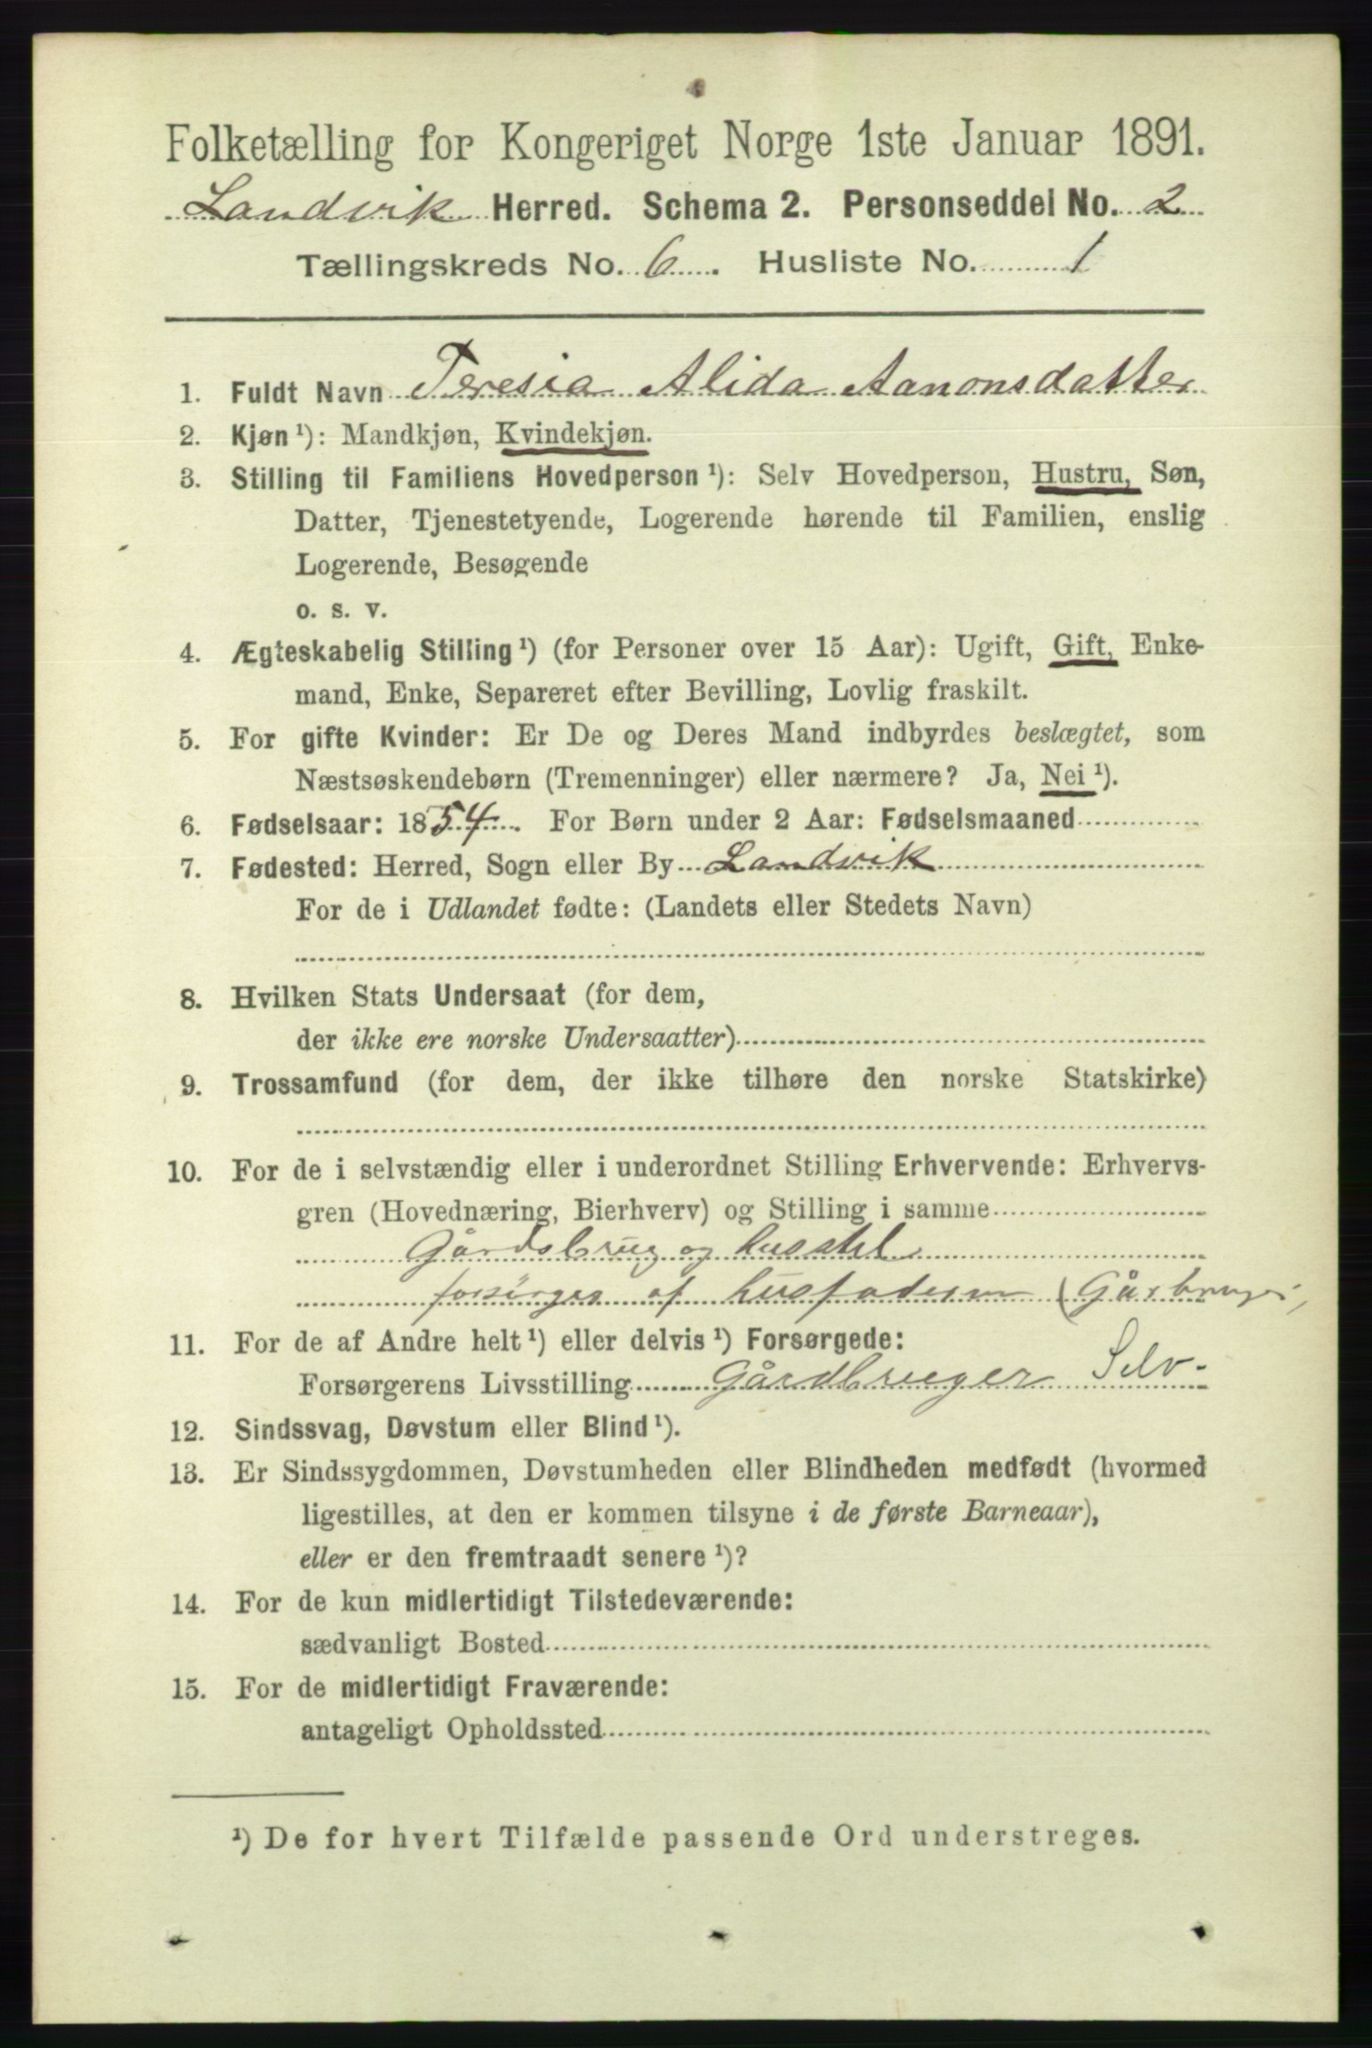 Folketælling for Kongeriget Norge 1ste Januar 1891.
Landvik Herred. Schema 2. Personseddel No. 2
Tællingskreds No. 6. Husliste No. 1
1. Fuldt Navn Teresia Alida Aanonsdatter
2. Kjøn¹): Mandkjøn, Kvindekjøn.
3. Stilling til Familiens Hovedperson¹): Selv Hovedperson, Hustru, Søn,
Datter, Tjenestetyende, Logerende hørende til Familien, enslig
Logerende, Besøgende
o. s. v.
4. Ægteskabelig Stilling¹) (for Personer over 15 Aar): Ugift, Gift, Enke-
mand, Enke, Separeret efter Bevilling, Lovlig fraskilt.
5. For gifte Kvinder: Er De og Deres Mand indbyrdes beslægtet, som
Næstsøskendebørn (Tremenninger) eller nærmere? Ja, Nei¹).
6. Fødselsaar: 1854. For Børn under 2 Aar: Fødselsmaaned
7. Fødested: Herred, Sogn eller By Landvik
For de i Udlandet fødte: (Landets eller Stedets Navn)
8. Hvilken Stats Undersaat (for dem,
der ikke ere norske Undersaatter)
9. Trossamfund (for dem, der ikke tilhøre den norske Statskirke)
10. For de i selvstændig eller i underordnet Stilling Erhvervende: Erhvervs-
gren (Hovednæring, Bierhverv) og Stilling i samme
Gårdsbrug og husstel
forsørges af husfaderen (Gårbruger,
11. For de af Andre helt¹) eller delvis¹) Forsørgede:
Forsørgerens Livsstilling Gårdbruger Selv-
12. Sindssvag, Døvstum eller Blind¹).
13. Er Sindssygdommen, Døvstumheden eller Blindheden medfødt (hvormed
ligestilles, at den er kommen tilsyne i de første Barneaar),
eller er den fremtraadt senere¹)?
14. For de kun midlertidigt Tilstedeværende:
sædvanligt Bosted
15. For de midlertidigt Fraværende:
antageligt Opholdssted
¹) De for hvert Tilfælde passende Ord understreges.